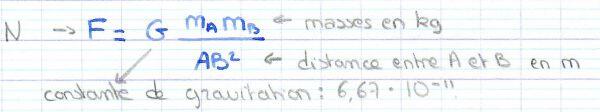 N → F = G mA mB ← masses en kg
AB² ← distance entre A et B en m
constante de gravitation : 6,67 · 10⁻¹¹